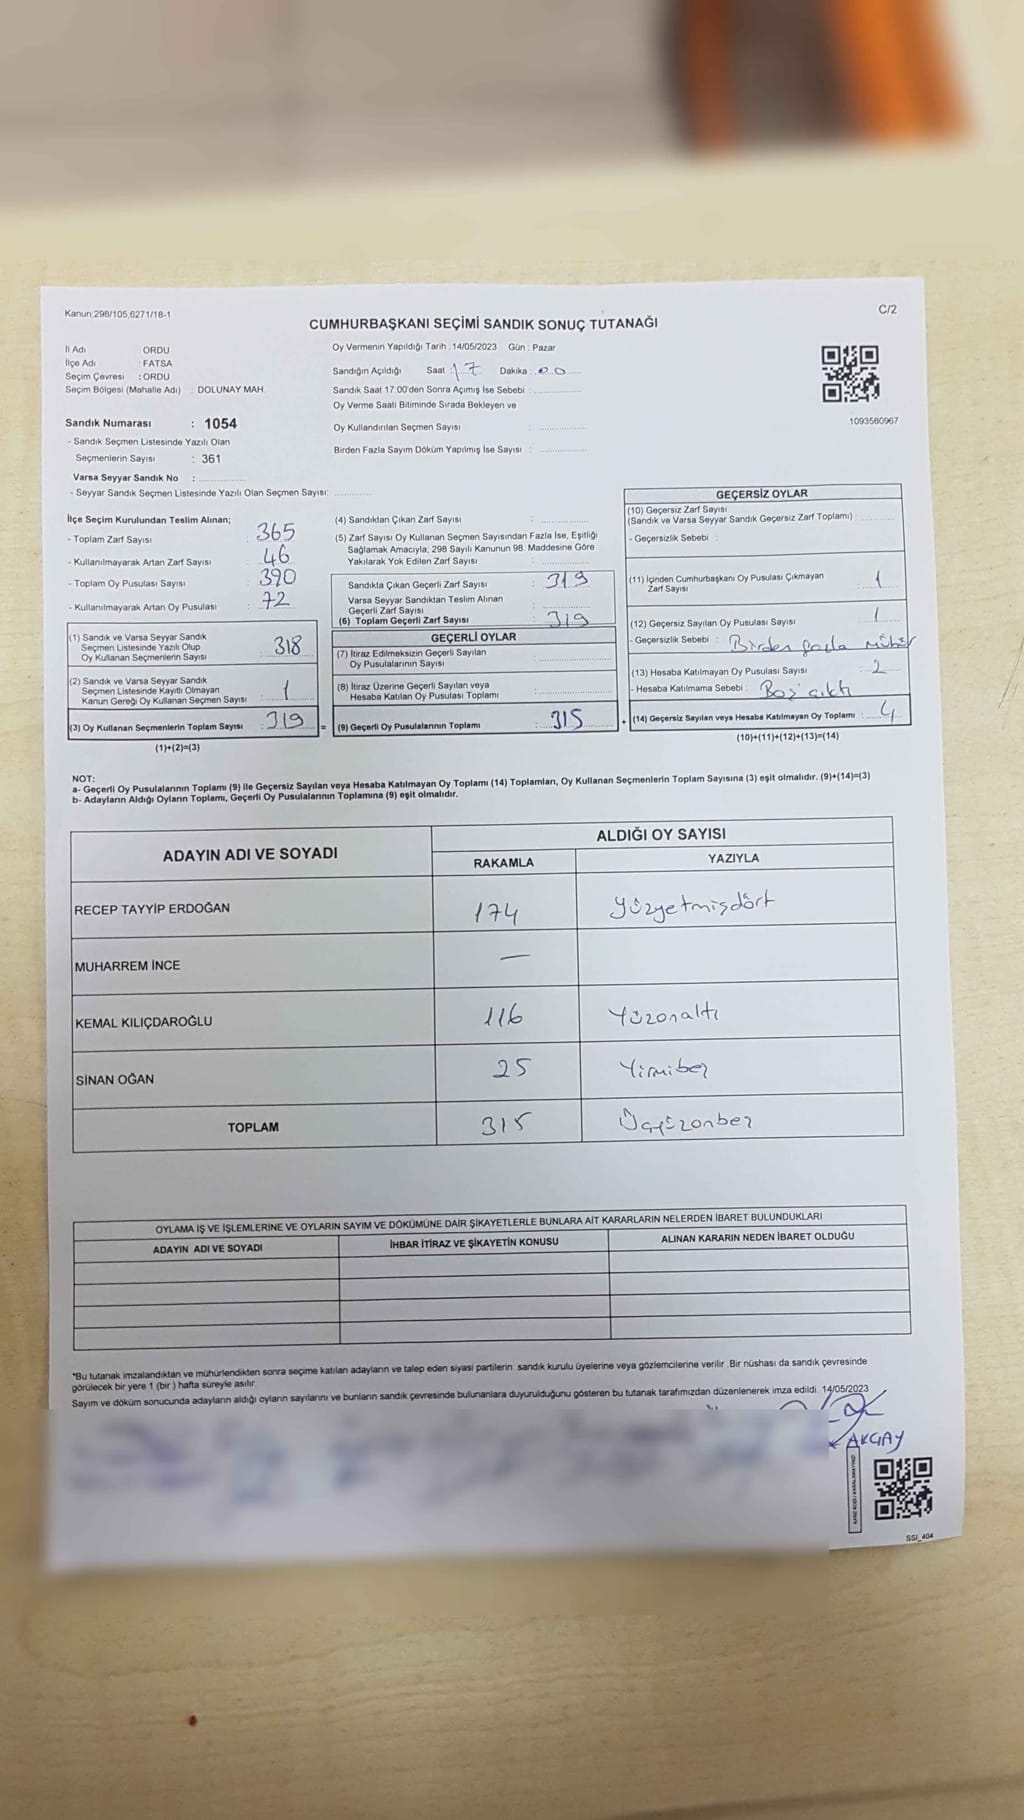 Kanun;298/105,6271/18-1
C/2
CUMHURBAŞKANI SEÇİMİ SANDIK SONUÇ TUTANAĞI
İl Adı ORDU
İlçe Adı : FATSA
Seçim Çevresi : ORDU
Seçim Bölgesi (Mahalle Adı) : DOLUNAY MAH.
Sandık Numarası : 1054
- Sandık Seçmen Listesinde Yazılı Olan
Seçmenlerin Sayısı : 361
Varsa Seyyar Sandık No :
- Seyyar Sandık Seçmen Listesinde Yazılı Olan Seçmen Sayısı:
Oy Vermenin Yapıldığı Tarih : 14/05/2023 Gün : Pazar
Sandığın Açıldığı Saat : 17 Dakika : 00
Sandık Saat 17:00'den Sonra Açımış İse Sebebi :
Oy Verme Saati Bitiminde Sırada Bekleyen ve
Oy Kullandırılan Seçmen Sayısı :
Birden Fazla Sayım Döküm Yapılmış İse Sayısı :
1093560967
İlçe Seçim Kurulundan Teslim Alınan;
- Toplam Zarf Sayısı : 365
- Kullanılmayarak Artan Zarf Sayısı : 46
- Toplam Oy Pusulası Sayısı : 390
- Kullanılmayarak Artan Oy Pusulası : 72
(1) Sandık ve Varsa Seyyar Sandık
Seçmen Listesinde Yazılı Olup
Oy Kullanan Seçmenlerin Sayısı 318
(2) Sandık ve Varsa Seyyar Sandık
Seçmen Listesinde Kayıtlı Olmayan
Kanun Gereği Oy Kullanan Seçmen Sayısı 1
(3) Oy Kullanan Seçmenlerin Toplam Sayısı : 319 =
(1)+(2)=(3)
(4) Sandıktan Çıkan Zarf Sayısı :
(5) Zarf Sayısı Oy Kullanan Seçmen Sayısından Fazla İse, Eşitliği
Sağlamak Amacıyla; 298 Sayılı Kanunun 98. Maddesine Göre
Yakılarak Yok Edilen Zarf Sayısı :
Sandıkta Çıkan Geçerli Zarf Sayısı : 319
Varsa Seyyar Sandıktan Teslim Alınan
Geçerli Zarf Sayısı :
(6) Toplam Geçerli Zarf Sayısı : 319
GEÇERLİ OYLAR
(7) İtiraz Edilmeksizin Geçerli Sayılan
Oy Pusulalarının Sayısı :
(8) İtiraz Üzerine Geçerli Sayılan veya
Hesaba Katılan Oy Pusulası Toplamı :
(9) Geçerli Oy Pusulalarının Toplamı : 315 +
GEÇERSİZ OYLAR
(10) Geçersiz Zarf Sayısı
(Sandık ve Varsa Seyyar Sandık Geçersiz Zarf Toplamı) :
- Geçersizlik Sebebi :
(11) İçinden Cumhurbaşkanı Oy Pusulası Çıkmayan
Zarf Sayısı : 1
(12) Geçersiz Sayılan Oy Pusulası Sayısı : 1
- Geçersizlik Sebebi : Birden fazla mühür
(13) Hesaba Katılmayan Oy Pusulası Sayısı : 2
- Hesaba Katılmama Sebebi : Boş çıktı
(14) Geçersiz Sayılan veya Hesaba Katılmayan Oy Toplamı : 4
(10)+(11)+(12)+(13)=(14)
NOT:
a- Geçerli Oy Pusulalarının Toplamı (9) ile Geçersiz Sayılan veya Hesaba Katılmayan Oy Toplamı (14) Toplamları, Oy Kullanan Seçmenlerin Toplam Sayısına (3) eşit olmalıdır. (9)+(14)=(3)
b- Adayların Aldığı Oyların Toplamı, Geçerli Oy Pusulalarının Toplamına (9) eşit olmalıdır.
ADAYIN ADI VE SOYADI ALDIĞI OY SAYISI
RAKAMLA YAZIYLA
RECEP TAYYİP ERDOĞAN 174 Yüzyetmişdört
MUHARREM İNCE —
KEMAL KILIÇDAROĞLU 116 Yüzonaltı
SİNAN OĞAN 25 Yirmibeş
TOPLAM 315 Üçyüzonbeş
OYLAMA İŞ VE İŞLEMLERİNE VE OYLARIN SAYIM VE DÖKÜMÜNE DAİR ŞİKAYETLERLE BUNLARA AİT KARARLARIN NELERDEN İBARET BULUNDUKLARI
ADAYIN ADI VE SOYADI İHBAR İTİRAZ VE ŞİKAYETİN KONUSU ALINAN KARARIN NEDEN İBARET OLDUĞU
*Bu tutanak imzalandıktan ve mühürlendikten sonra seçime katılan adayların ve talep eden siyasi partilerin sandık kurulu üyelerine veya gözlemcilerine verilir .Bir nüshası da sandık çevresinde
görülecek bir yere 1 (bir ) hafta süreyle asılır.
Sayım ve döküm sonucunda adayların aldığı oyların sayılarını ve bunların sandık çevresinde bulunanlara duyurulduğunu gösteren bu tutanak tarafımızdan düzenlenerek imza edildi. 14/05/2023
AKÇAY
SSI_404